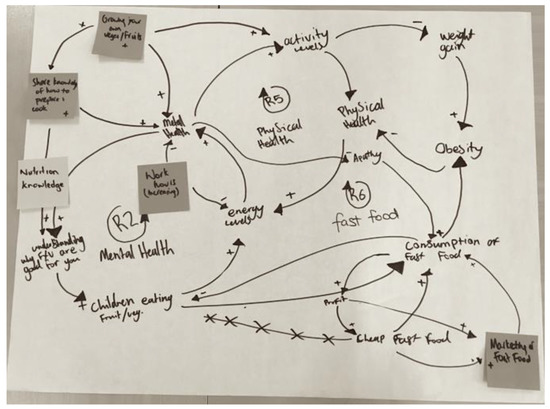 Growing your
own
vegs/fruits
+
Share knowledge
of how to
prepare +
cook
+
Mental
Health
activity
levels
Weight
gain
R5
Physical
Health
Physical
Health
Apathy
Obesity
Nutrition
knowledge
Work
hours
(increasing)
energy
levels
R6
fast food
R2
Mental Health
understanding
why F/V are
good for you
Children eating
Fruit/veg.
Consumption of
Fast Food
Profit
Cheap Fast Food
Marketing of
Fast Food
+